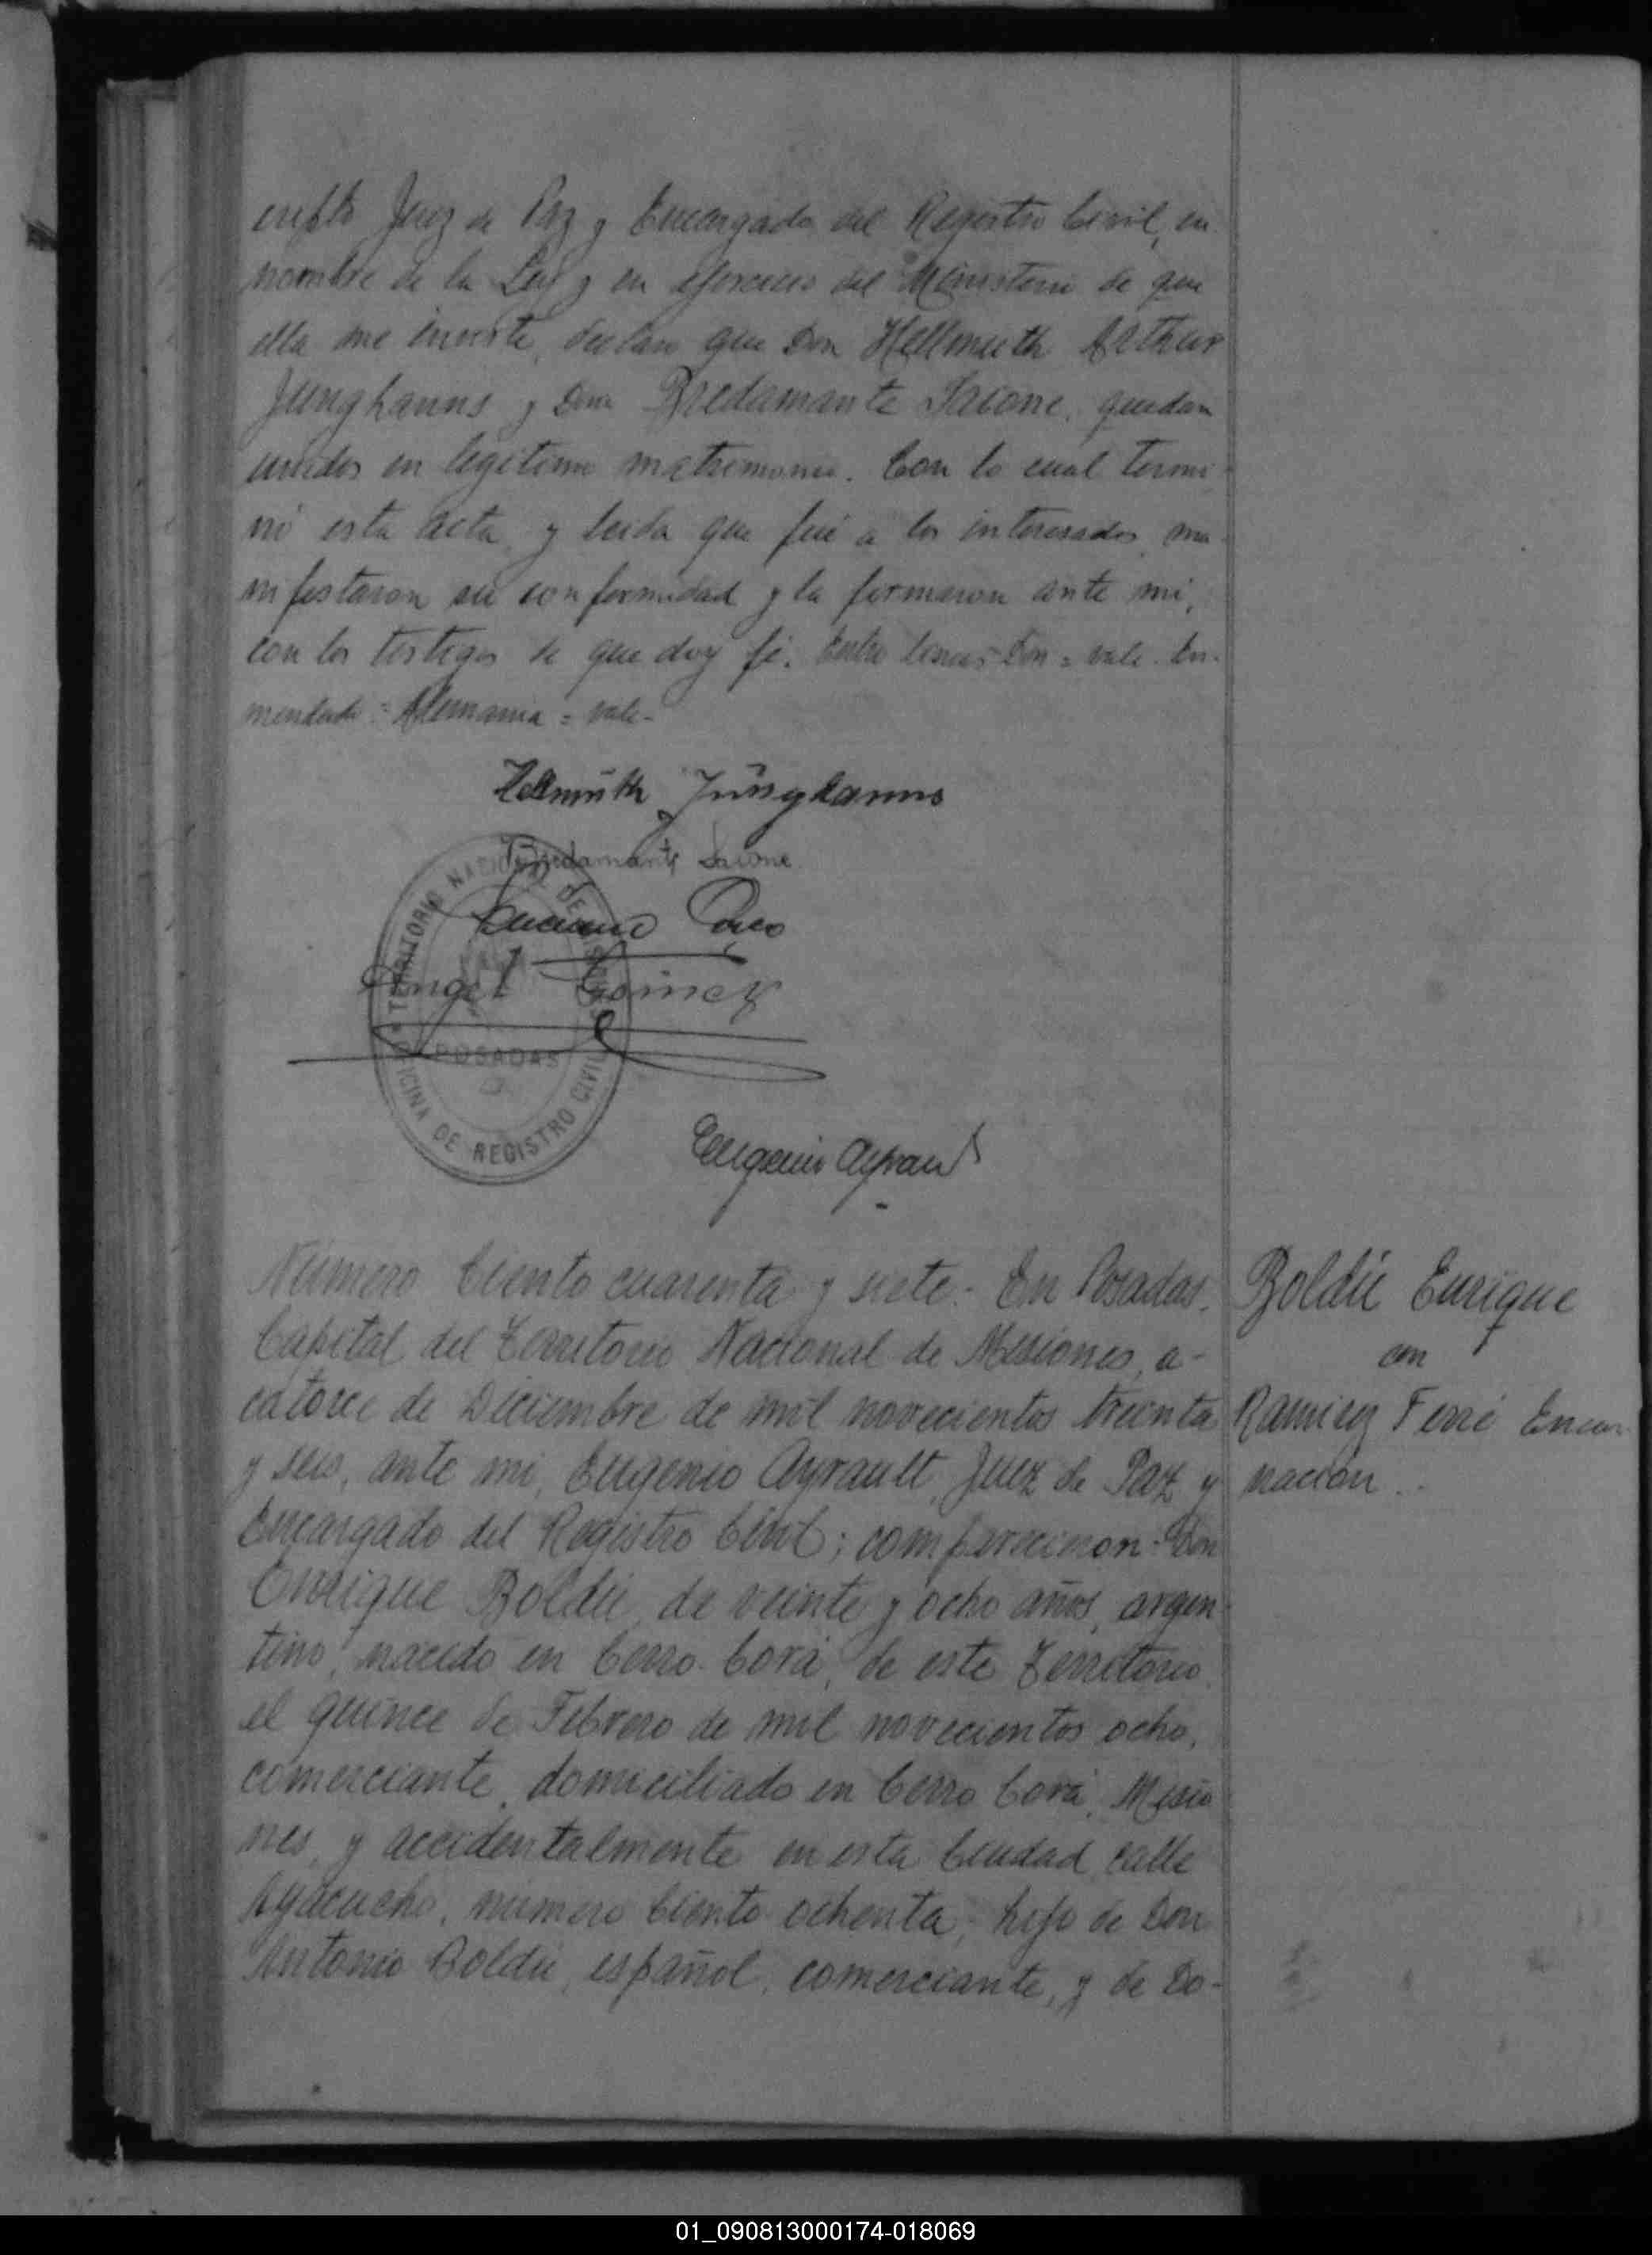 cripto Juez de Paz y Encargado del Registro Civil, en
nombre de la Ley y en ejercicio del Ministerio de que
ella me inviste, declaro que Don Hellmuth Arthur
Junghanns y Doña Bredamante Saione, quedan
unidos en legitimo matrimonio. Con lo cual termi
nó esta acta, y leida que fué a los interesados, ma
nifestaron su conformidad y la firmaron ante mi,
con los testigos de que doy fé. Entre lineas = Don = vale. En-
mendado = Alemania = vale-
Hellmuth Junghanns
Bredamante Saione
Luciano
Angel Gomez
TERRITORIO NACIONAL DE MISIONES
POSADAS
OFICINA DE REGISTRO CIVIL
Eugenio Ayrault
Número Ciento cuarenta y siete.- En Posadas,
Capital del Territorio Nacional de Misiones, a-
catorce de Diciembre de mil novecientos treinta
y seis, ante mi, Eugenio Ayrault, Juez de Paz y
Encargado del Registro Civil; comparecieron: Don
Enrique Boldú, de veinte y ocho años, argen
tino, nacido en Cerro-Corá, de este Territorio,
el quince de Febrero de mil novecientos ocho,
comerciante, domiciliado en Cerro Corá, Misio
nes, y accidentalmente en esta Ciudad, calle
Ayacucho, número Ciento ochenta, hijo de Don
Antonio Boldú, español, comerciante, y de Do-
Boldú Enrique
con
Ramirez Ferré Encar
nación..
01_090813000174-018069